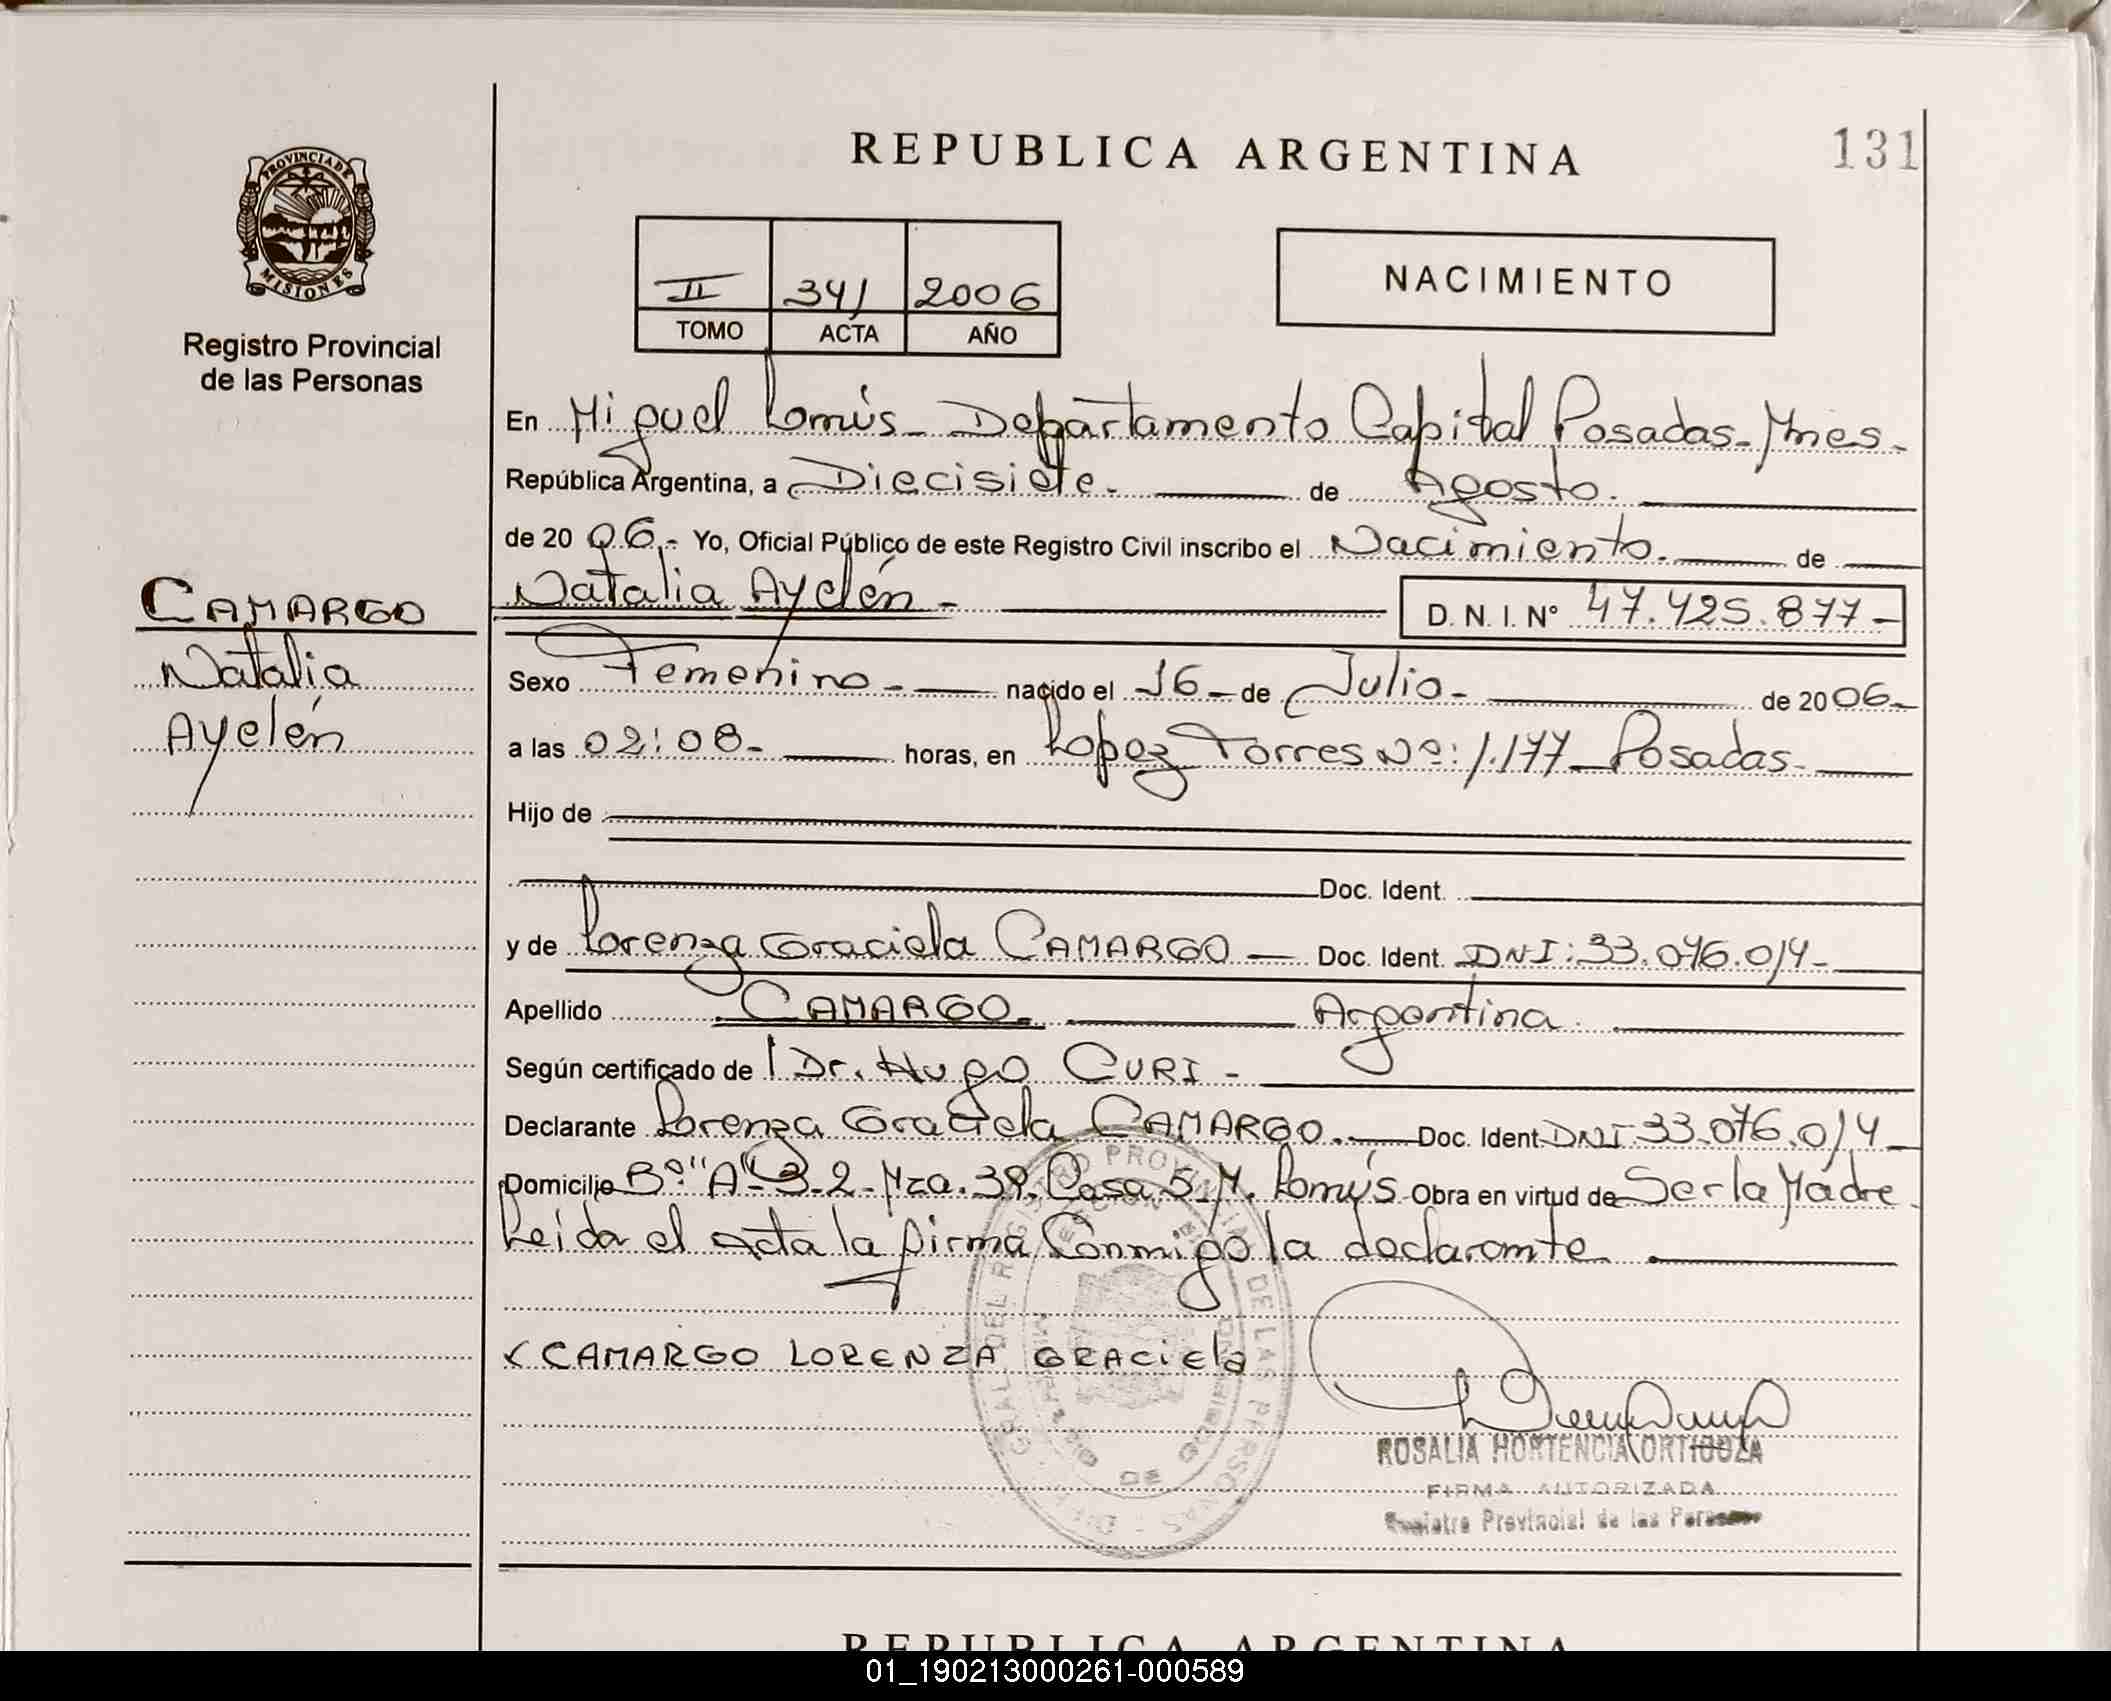 REPUBLICA ARGENTINA
131
PROVINCIA DE
MISIONES
Registro Provincial
de las Personas
II 341 2006
TOMO ACTA AÑO
NACIMIENTO
En Miguel Lanús - Departamento Capital Posadas - Mnes -
República Argentina, a Diecisiete. de Agosto.
de 20 06.- Yo, Oficial Público de este Registro Civil inscribo el Nacimiento. de
Natalia Ayelén - D. N. I. Nº 47.425.877 -
CAMARGO
Natalia
Ayelén
Sexo Femenino - nacido el 16 - de Julio - de 20 06 -
a las 02:08 - horas, en Lopez Torres Nº: 1.177 - Posadas -
Hijo de
Doc. Ident.
y de Lorenza Graciela CAMARGO - Doc. Ident. DNI: 33.076.014 -
Apellido CAMARGO. Argentina.
Según certificado de Dr. Hugo CURI -
Declarante Lorenza Graciela CAMARGO. Doc. Ident. DNI 33.076.014 -
Domicilio Bº "A" 3-2 - Mza. 39. Casa 5. M. Lanús Obra en virtud de Ser la Madre.
Leida el acta la firma Conmigo la declarante
CAMARGO LORENZA GRACIELA
GRAL DEL REGISTRO PROVINCIAL DE LAS PERSONAS
ROSALIA HORTENCIA ORTIGOZA
FIRMA AUTORIZADA
Registro Provincial de las Personas
REPUBLICA ARGENTINA
01_190213000261-000589